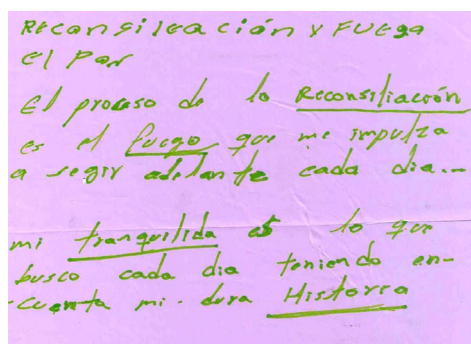 Reconsileación y Fuego
El Por
El proceso de la Reconsiliación
es el fuego que me impulza
a segir adelante cada dia...
mi tranquilida es lo que
busco cada dia teniendo en-
-cuenta mi dura Historia